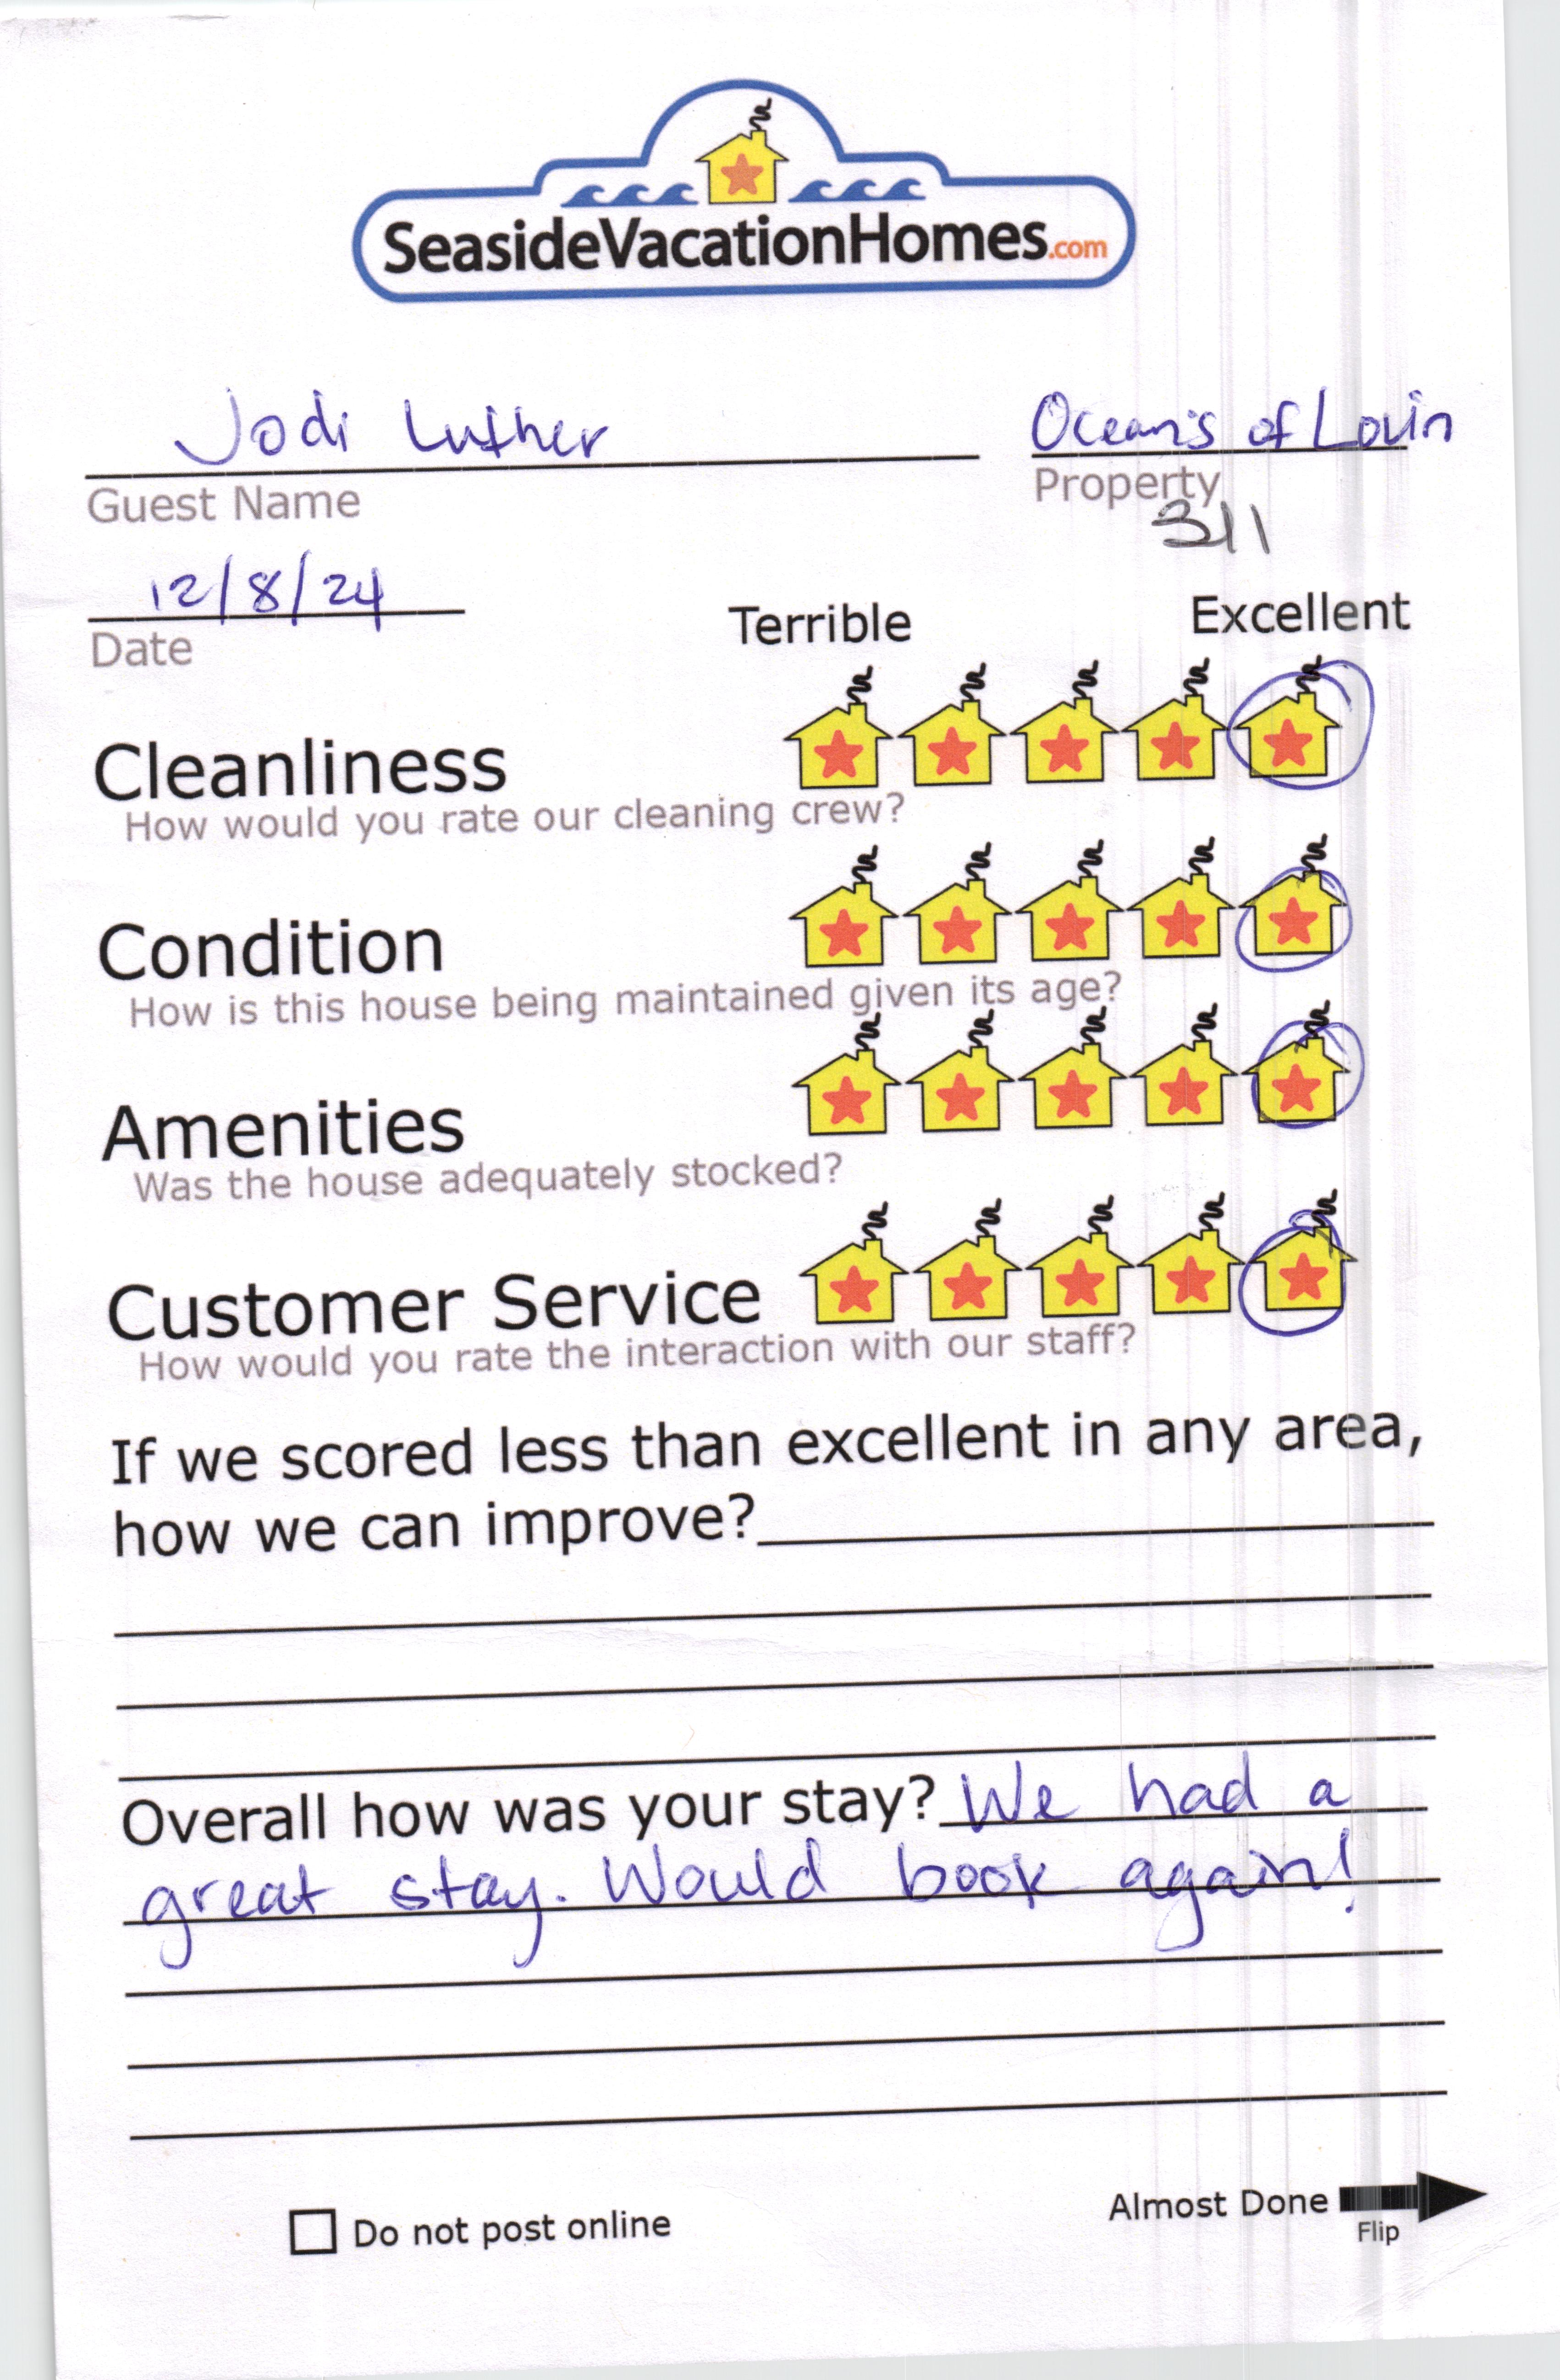 SeasideVacationHomes.com
Jodi Luther
Oceans of Lovin
Guest Name
Property
311
12/8/24
Date
Terrible
Excellent
Cleanliness
How would you rate our cleaning crew?
Condition
How is this house being maintained given its age?
Amenities
Was the house adequately stocked?
Customer Service
How would you rate the interaction with our staff?
If we scored less than excellent in any area,
how we can improve?
Overall how was your stay? We had a
great stay. Would book again!
Do not post online
Almost Done
Flip